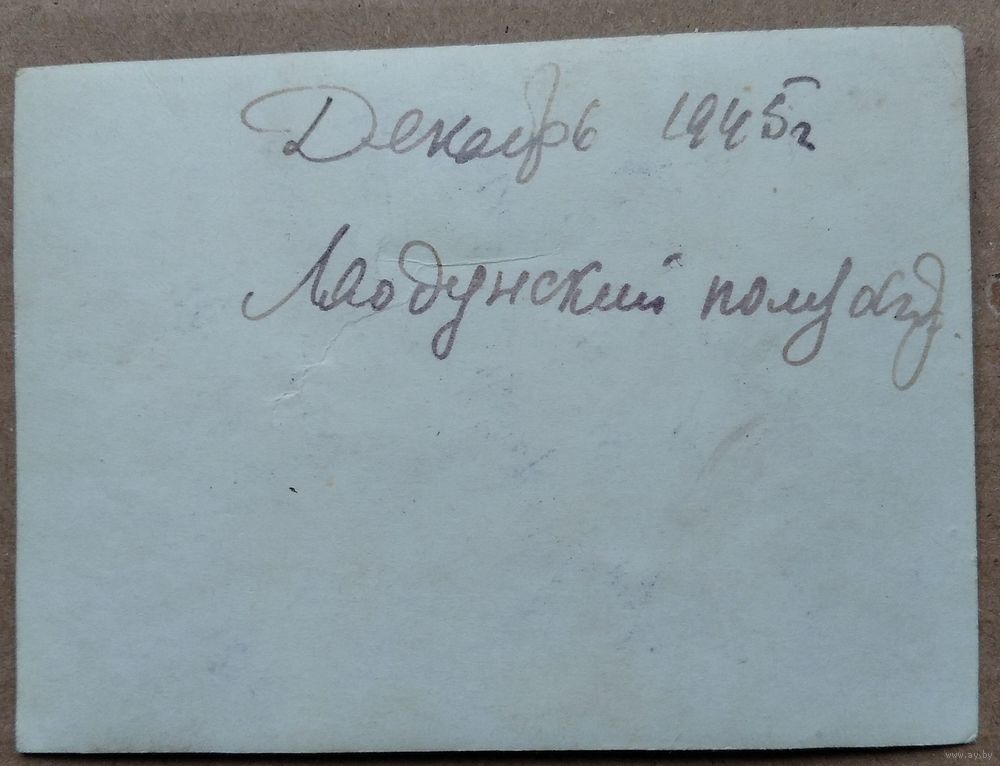 Декабрь 1945г
Ляодунский полуостр.
www.ay.by